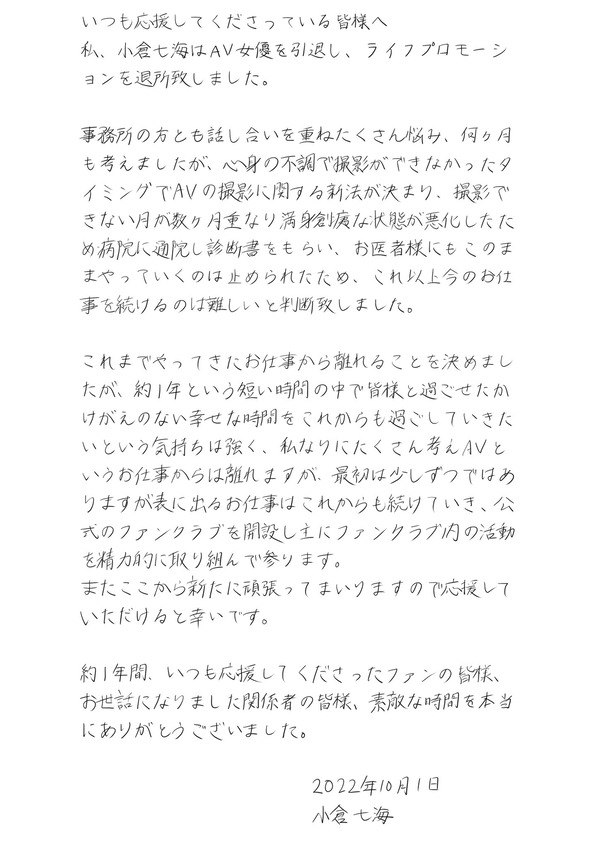 いつも応援してくださっている皆様へ
私、小倉七海はAV女優を引退し、ライフプロモーシ
ョンを退所致しました。
事務所の方とも話し合いを重ねたくさん悩み、何ヶ月
も考えましたが、心身の不調で撮影ができなかったタ
イミングでAVの撮影に関する新法が決まり、撮影で
きない月が数ヶ月重なり満身創痍な状態が悪化したた
め病院に通院し診断書をもらい、お医者様にもこのま
まやっていくのは止められたため、これ以上今のお仕
事を続けるのは難しいと判断致しました。
これまでやってきたお仕事から離れることを決めまし
たが、約1年という短い時間の中で皆様と過ごせたか
けがえのない幸せな時間をこれからも過ごしていきた
いという気持ちは強く、私なりにたくさん考えAVと
いうお仕事からは離れますが、最初は少しずつではあ
りますが表に出るお仕事はこれからも続けていき、公
式のファンクラブを開設し主にファンクラブ内の活動
を精力的に取り組んで参ります。
またここから新たに頑張ってまいりますので応援して
いただけると幸いです。
約1年間、いつも応援してくださったファンの皆様、
お世話になりました関係者の皆様、素敵な時間を本当
にありがとうございました。
2022年10月1日
小倉七海